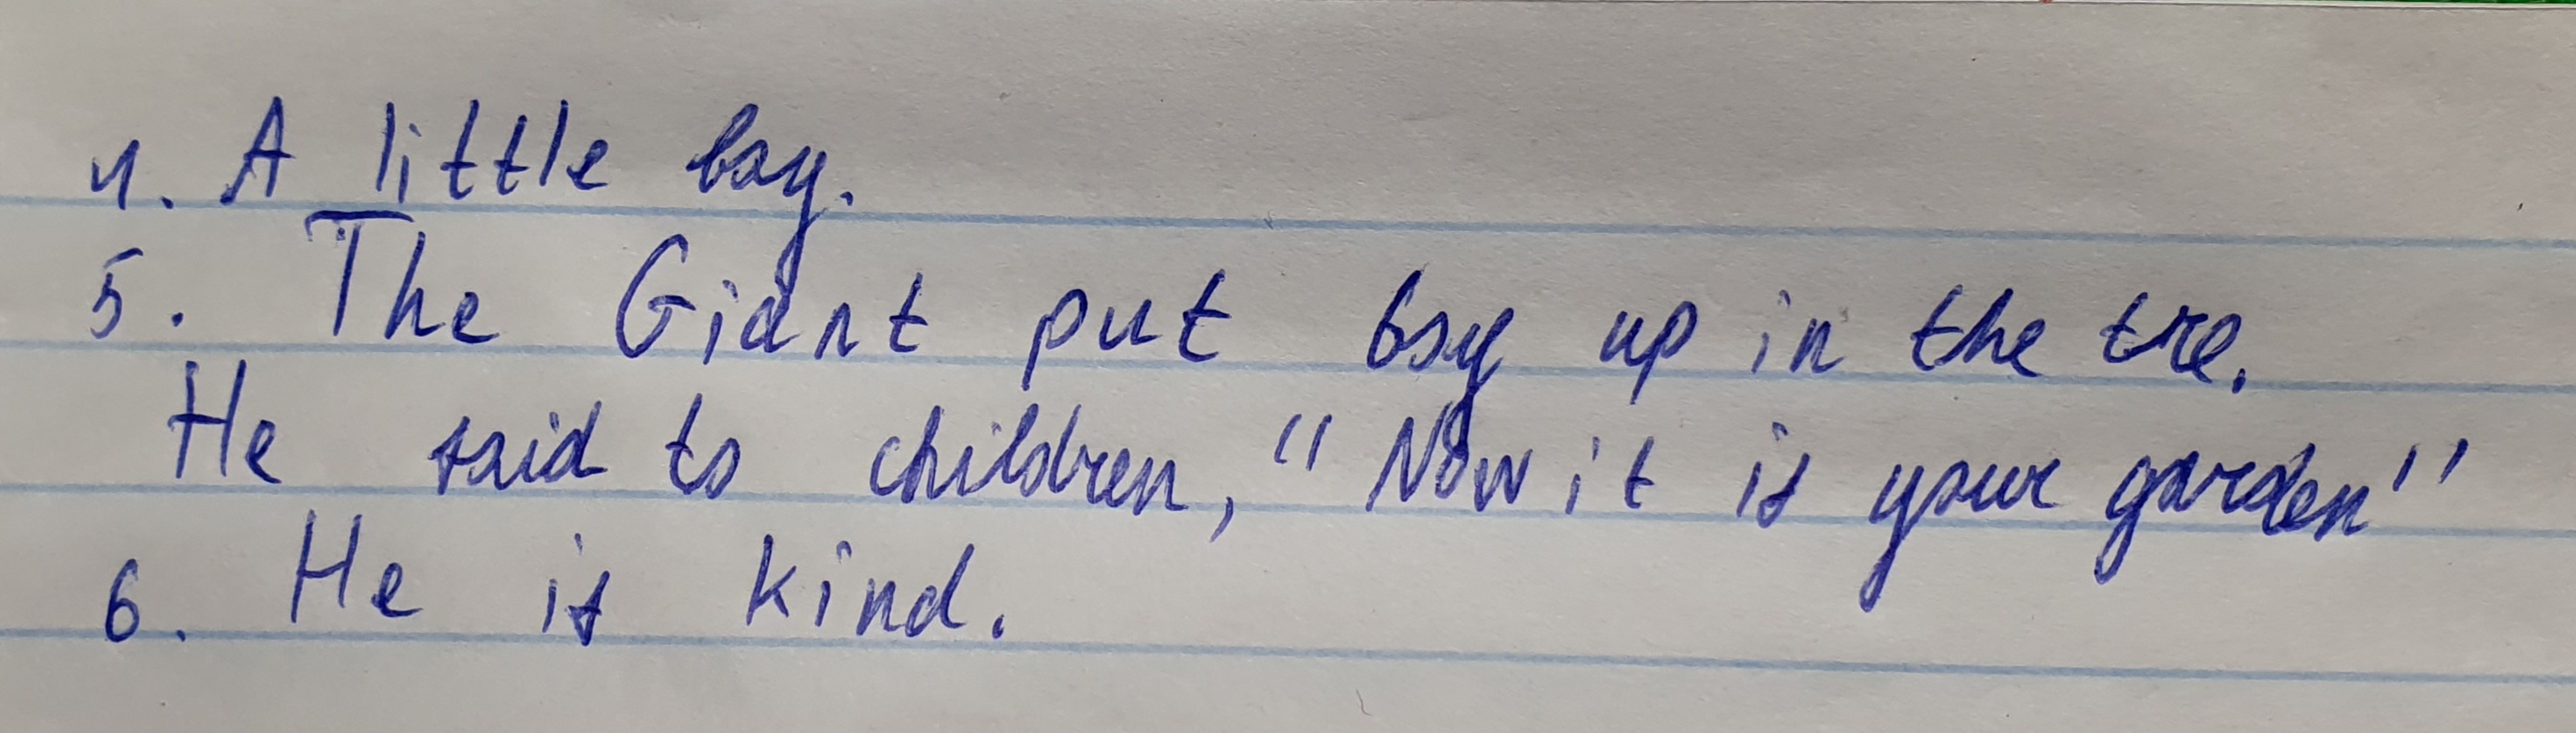 4. A little boy.
5. The Giant put boy up in the tre.
He said to children, "Now it is your garden"
6. He is kind.